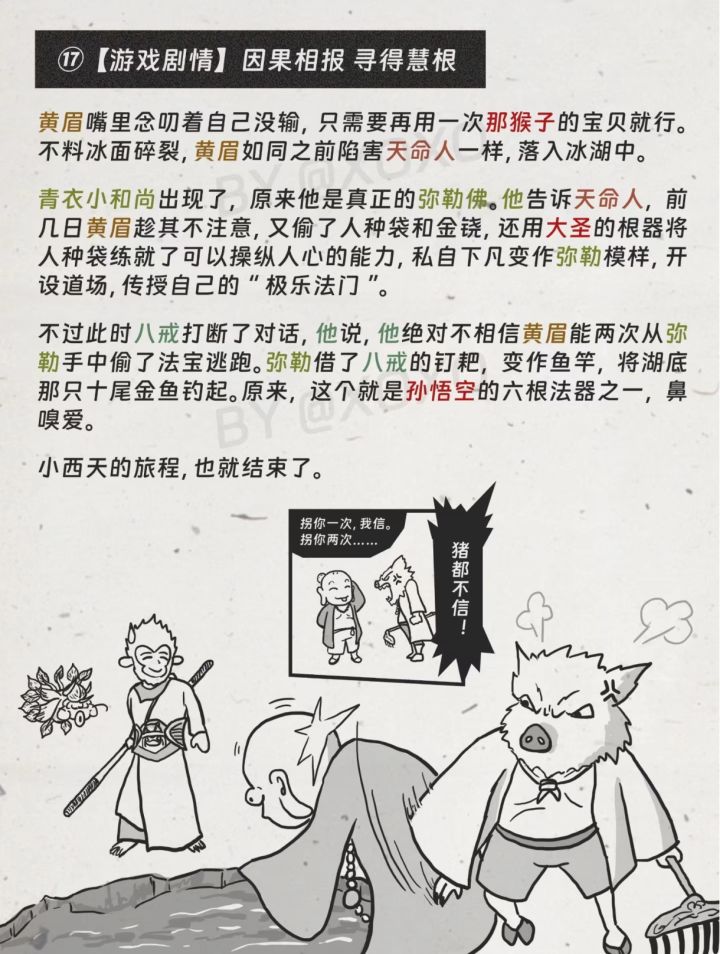 ⑰【游戏剧情】因果相报 寻得慧根
黄眉嘴里念叨着自己没输, 只需要再用一次那猴子的宝贝就行。
不料冰面碎裂, 黄眉如同之前陷害天命人一样, 落入冰湖中。
青衣小和尚出现了, 原来他是真正的弥勒佛。他告诉天命人, 前
几日黄眉趁其不注意, 又偷了人种袋和金铙, 还用大圣的根器将
人种袋练就了可以操纵人心的能力, 私自下凡变作弥勒模样, 开
设道场, 传授自己的“极乐法门”。
不过此时八戒打断了对话, 他说, 他绝对不相信黄眉能两次从弥
勒手中偷了法宝逃跑。弥勒借了八戒的钉耙, 变作鱼竿, 将湖底
那只十尾金鱼钓起。原来, 这个就是孙悟空的六根法器之一, 鼻
嗅爱。
小西天的旅程, 也就结束了。
拐你一次, 我信。
拐你两次……
猪都不信!